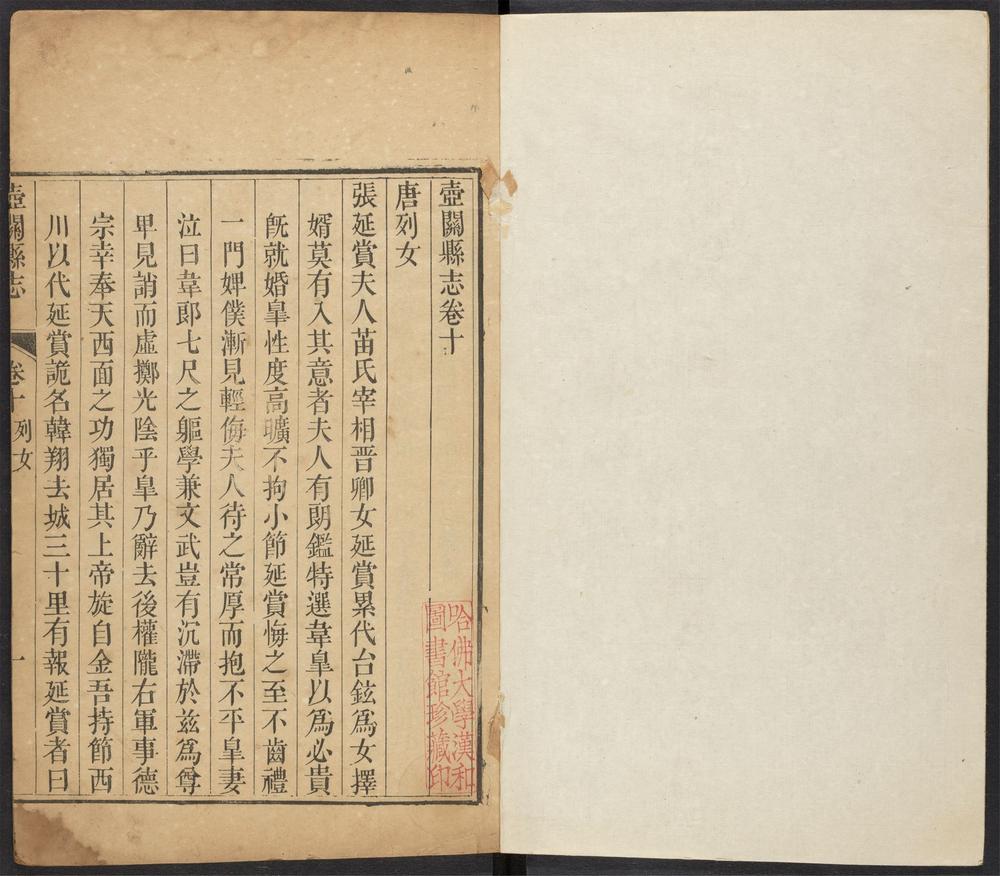 壺關縣志卷十
唐列女
張延賞夫人苗氏宰相晋卿女延賞累代台鉉爲女擇
婿莫有入其意者夫人有朗鑑特選韋臯以爲必貴
旣就婚臯性度高曠不拘小節延賞悔之至不齒禮
一門婢僕漸見輕侮夫人待之常厚而抱不平臯妻
泣曰韋郎七尺之軀學兼文武豈有沉滯於兹爲尊
畢見誚而虛擲光陰乎臯乃辭去後權隴右軍事德
宗幸奉天西面之功獨居其上帝旋自金吾持節西
川以代延賞詭名韓翔去城三十里有報延賞者曰
壺關縣志
卷十
列女
一
哈佛大學漢和
圖書館珍藏印